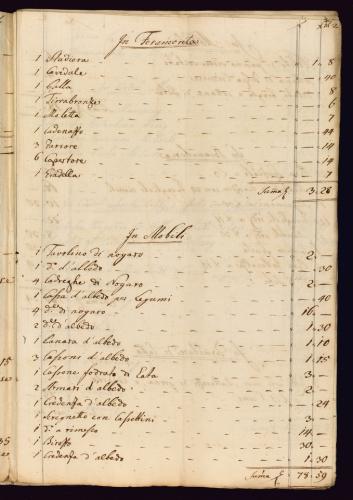 In Feramenta
1 Stadiera 1. 8
1 Cavedale 40
1 Galla 8
1 Tirrabronze 6
1 Moletta 7
1 Cadenasso 44
3 14
6 14
1 Gradella 7
Suma £ 3. 28
In Mobili
1 Tavolino di nogaro 2.
1 d.º d'albedo 30
4 Cadreghe di Nogaro 2.
1 Cassa d'albedo per legumi 40
4 d.te di nogaro 16.
2 d.te d'albedo 1. 30
1 d'albedo 1. 10
3 Cassoni d'albedo 1. 15
1 Cassone fodrato di Latta 3.
2 Armari d'albedo 2.
1 Credenza d'albedo 24
1 con Cassettini 3.
1 d.º a rimesso 14.
1 30.
1 Credenza d'albedo 1. 30
Suma £ 78. 59